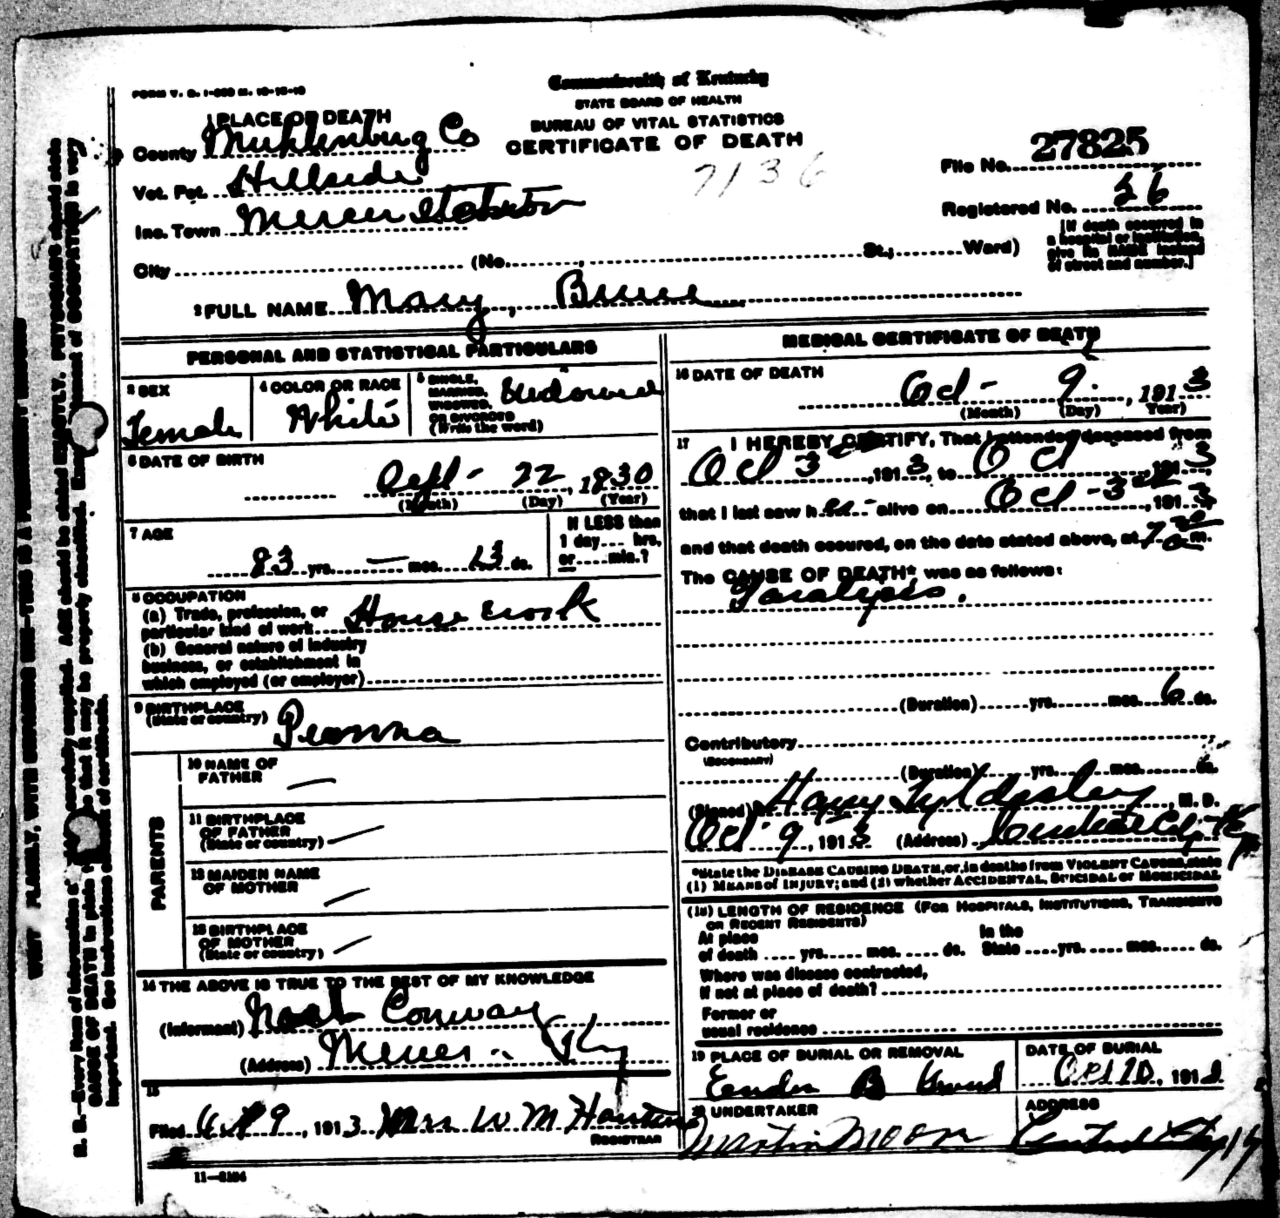 FORM V. S. 1-
Commonwealth of Kentucky
STATE BOARD OF HEALTH
BUREAU OF VITAL STATISTICS
CERTIFICATE OF DEATH
7136
1 PLACE OF DEATH
County Muhlenburg Co
Vot. Pct. Hillside
Inc. Town Mercer Station
City (No. , St.; Ward)
File No. 27825
Registered No. 56
[If death occurred in
a hospital or institution,
give its NAME instead
of street and number.]
2 FULL NAME Mary, Bruce
PERSONAL AND STATISTICAL PARTICULARS
3 SEX
Female
4 COLOR OR RACE
White
5 SINGLE,
MARRIED,
WIDOWED
OR DIVORCED
(Write the word)
Widowed
6 DATE OF BIRTH
Sept - 22, 1830
(Month) (Day) (Year)
7 AGE
83 yrs. — mos. 13 ds.
If LESS than
1 day.... hrs.
or.....min.?
8 OCCUPATION
(a) Trade, profession, or
particular kind of work House work
(b) General nature of industry
business, or establishment in
which employed (or employer)
9 BIRTHPLACE
(State or country)
PARENTS
10 NAME OF
FATHER —
11 BIRTHPLACE
OF FATHER
(State or country) —
12 MAIDEN NAME
OF MOTHER —
13 BIRTHPLACE
OF MOTHER
(State or country) —
14 THE ABOVE IS TRUE TO THE BEST OF MY KNOWLEDGE
(Informant) Conway
(Address) Mercer - Ky
15
Filed Oct 9, 1913 Mrs W M
REGISTRAR
11-3184
MEDICAL CERTIFICATE OF DEATH
16 DATE OF DEATH
Oct - 9, 1913
(Month) (Day) Year)
17 I HEREBY CERTIFY, That I attended deceased from
Oct 3, 1913, to Oct, 1913
that I last saw h er alive on Oct - 3, 191
and that death occured, on the date stated above, at 7 30 a m.
The CAUSE OF DEATH* was as follows:
Paralysis.
(Duration) yrs. mos. 6 ds.
Contributory
(SECONDARY)
(Duration) yrs. mos. ds.
(Signed) Harry, M. D.
Oct 9, 1913 (Address) Central City Ky
*State the DISEASE CAUSING DEATH, or, in deaths from VIOLENT CAUSES, state
(1) MEANS of INJURY; and (2) whether ACCIDENTAL, SUICIDAL or HOMICIDAL
(18) LENGTH OF RESIDENCE (FOR HOSPITALS, INSTITUTIONS, TRANSIENTS
OR RECENT RESIDENTS)
At place
of death .... yrs. mos. ds.
In the
State ....yrs. mos. ds.
Where was disease contracted,
If not at place of death?
Former or
usual residence
19 PLACE OF BURIAL OR REMOVAL
DATE OF BURIAL
Oct 10, 191
20 UNDERTAKER
Martin Moore
ADDRESS
Central City Ky
WRITE PLAINLY, WITH UNFADING INK—THIS IS A PERMANENT RECORD
N. B.—Every item of information should be carefully supplied. AGE should be stated EXACTLY. PHYSICIANS should state
CAUSE OF DEATH in plain terms, so that it may be properly classified. Exact statement of OCCUPATION is very
important. See instructions on back of certificate.